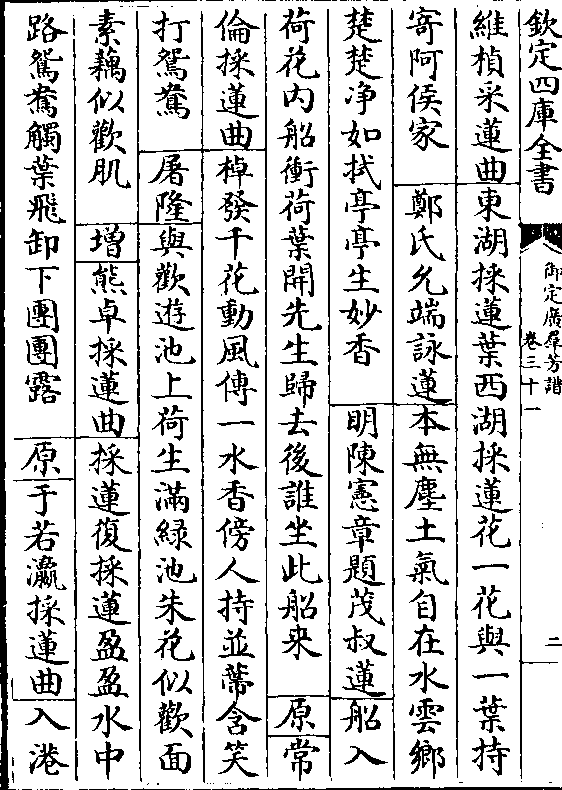 欽定四庫全書
御定廣羣芳譜
卷三十一
二
維楨采蓮曲東湖採蓮葉西湖採蓮花一花與一葉持
寄阿侯家 鄭氏允端詠蓮本無塵土氣自在水雲鄉
楚楚净如拭亭亭生妙香 明陳憲章題茂叔蓮船入
荷花内船衝荷葉開先生歸去後誰坐此船来 原常
倫採蓮曲棹發千花動風傳一水香傍人持並蒂含笑
打鴛鴦 屠隆與歡遊池上荷生滿緑池朱花似歡面
素藕似歡肌 增熊卓採蓮曲採蓮復採蓮盈盈水中
路鴛鴦觸葉飛卸下團團露 原于若瀛採蓮曲入港